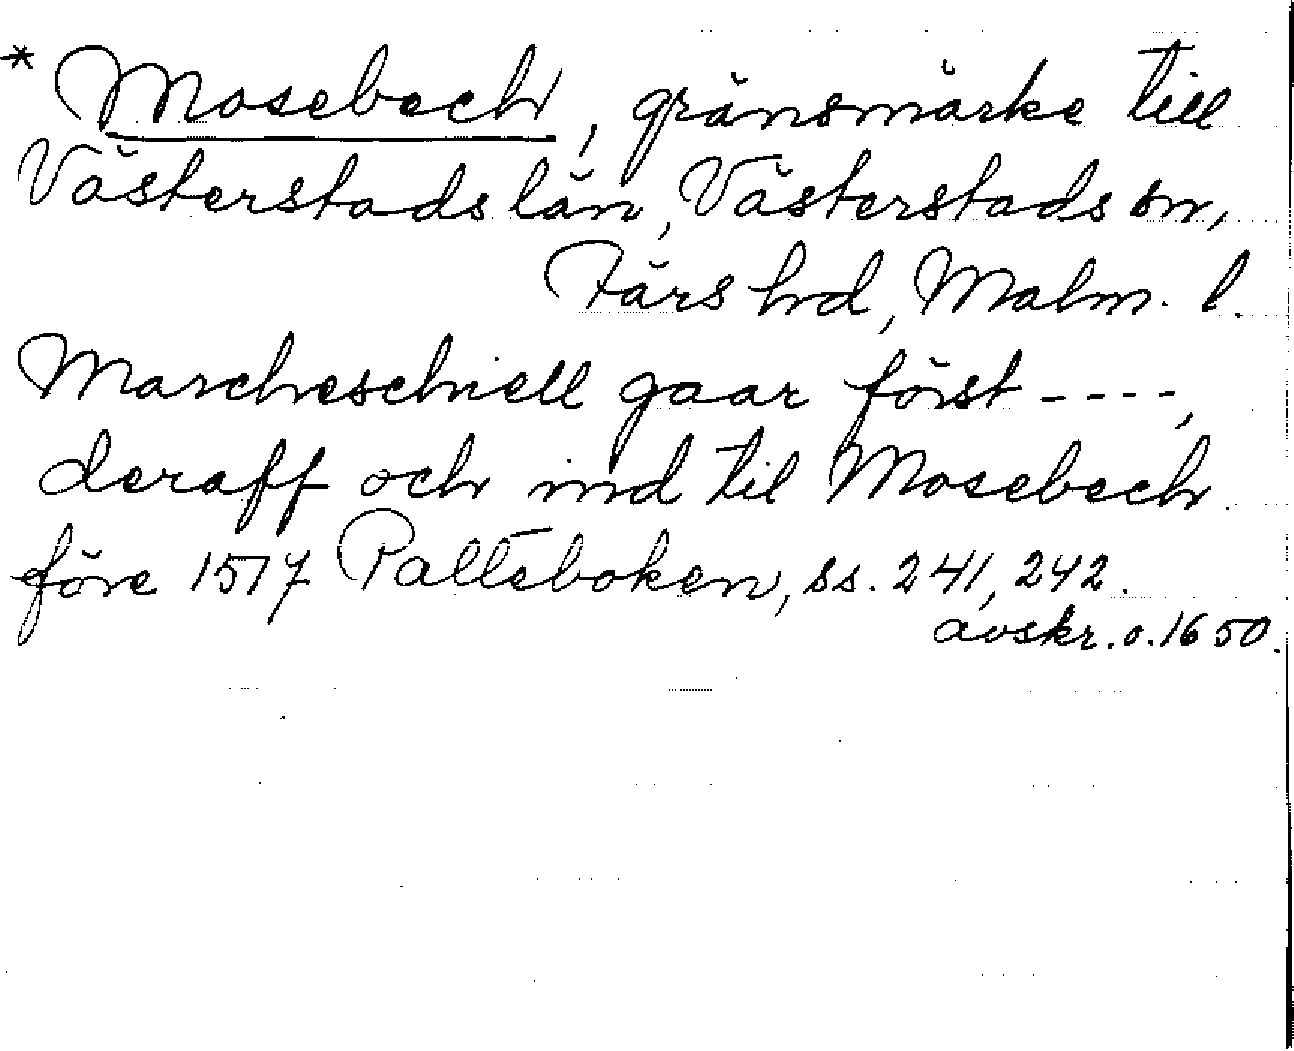 * Mosebech, gränsmärke till
Västerstads län, Västerstads sn,
Färs hd, Malm. l.
Marcheschiell gaar först ----,
deraff och ind til Mosebech
före 1517 Palteboken, ss. 241, 242.
avskr. o. 1650.